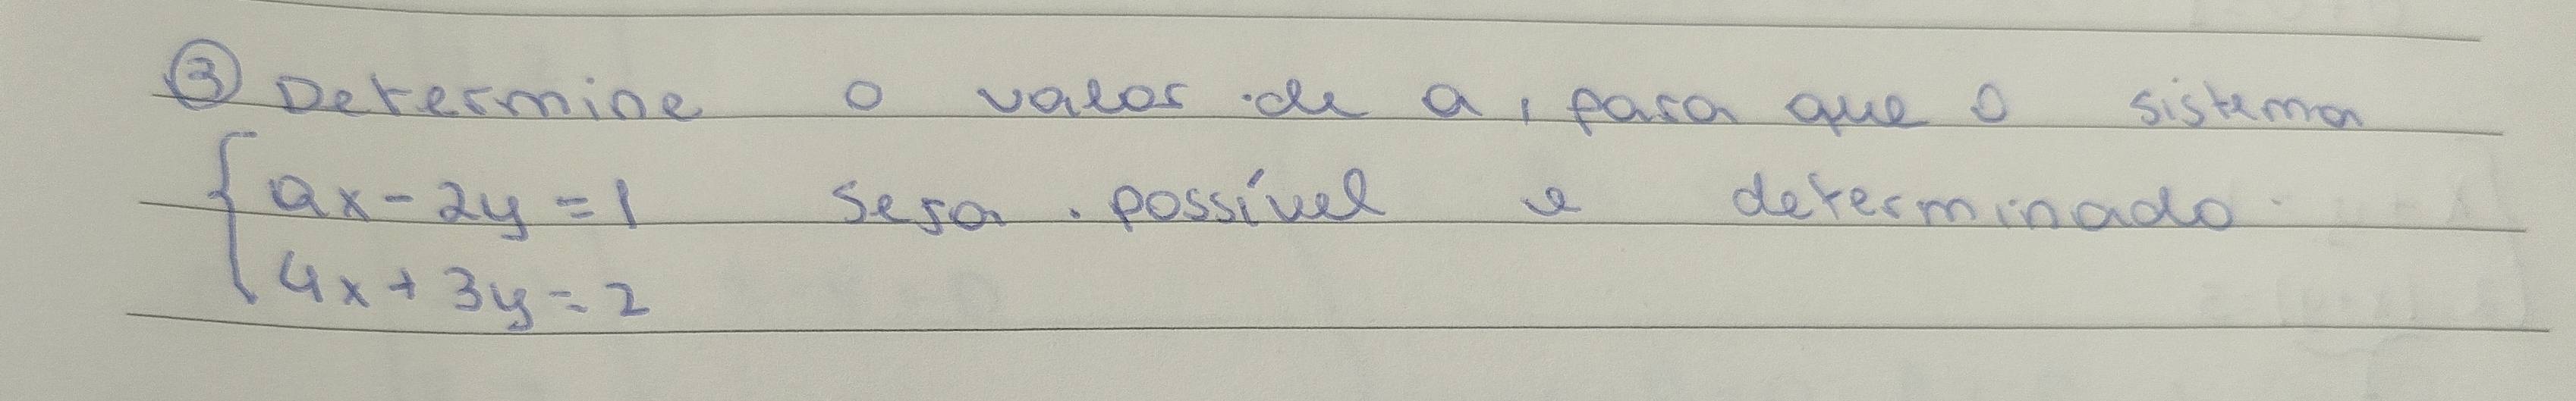 ③ Determine o valor de a, para que o sistema
{ax - 2y = 1 seja possível e determinado.
4x + 3y = 2